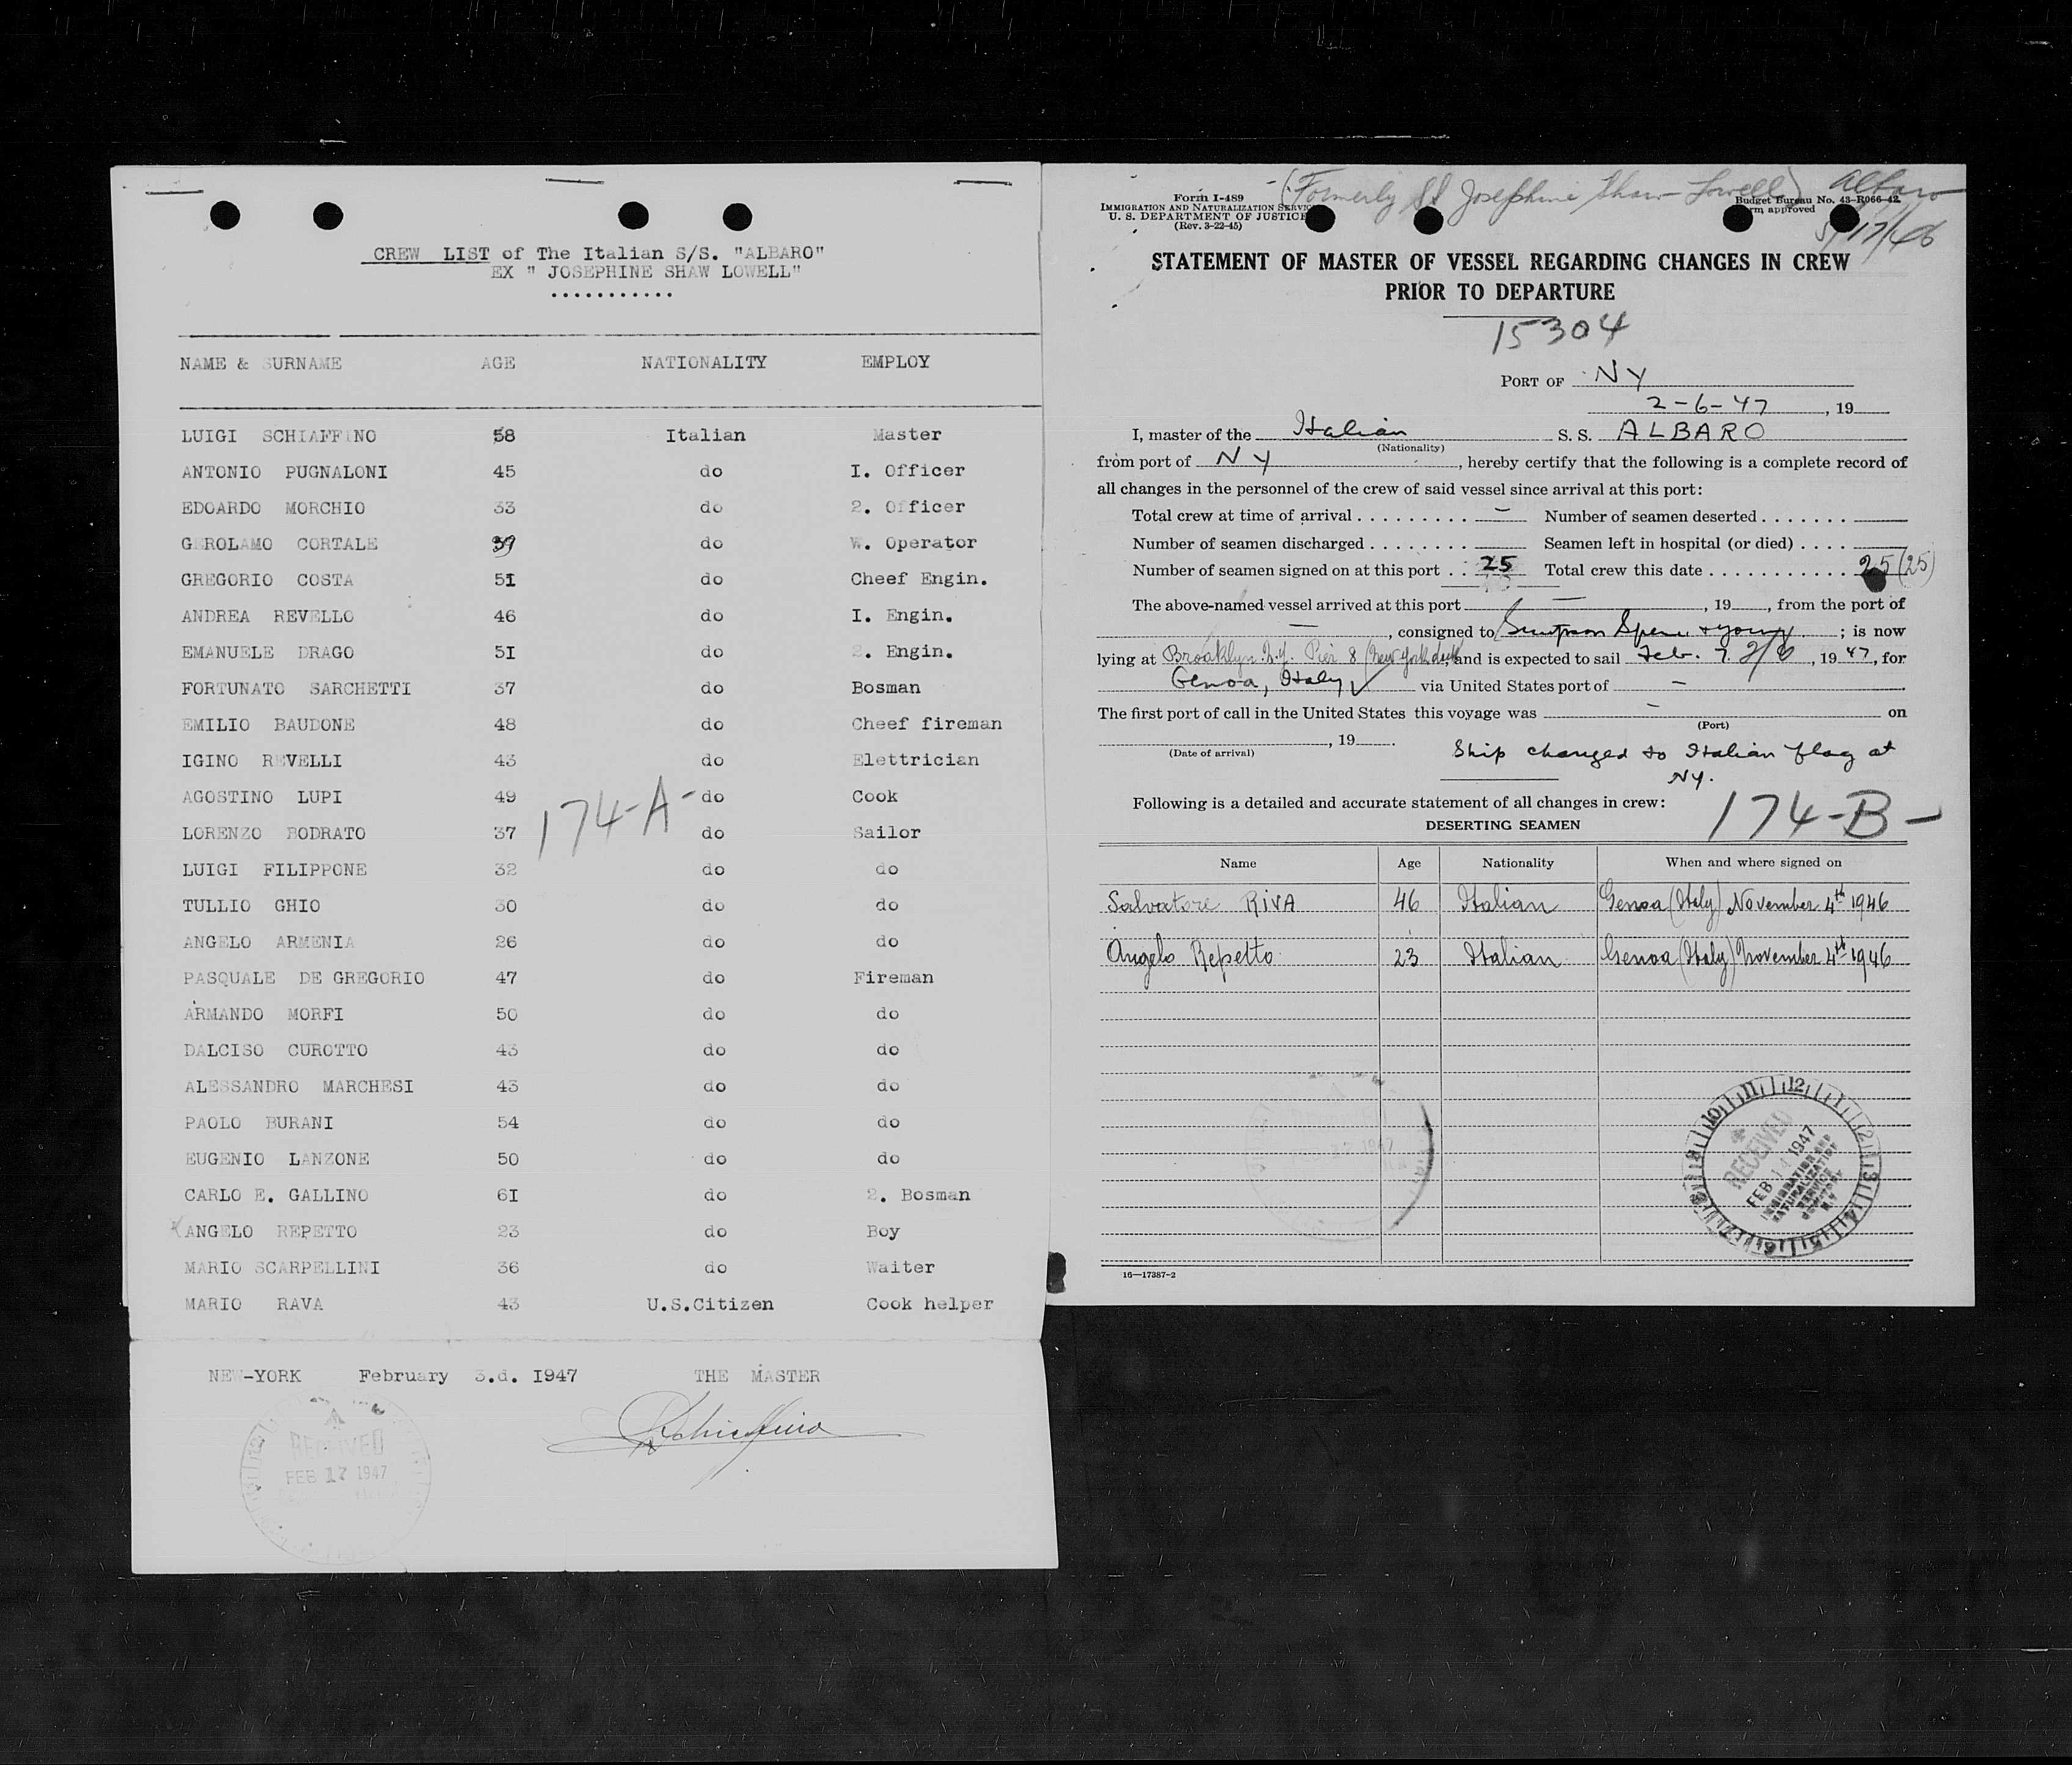 CREW LIST of The Italian S/S. "ALBARO"
EX " JOSEPHINE SHAW LOWELL"
...........
NAME & SURNAME AGE NATIONALITY EMPLOY
LUIGI SCHIAFFINO 58 Italian Master
ANTONIO PUGNALONI 45 do I. Officer
EDOARDO MORCHIO 33 do 2. Officer
GEROLAMO CORTALE 39 do W. Operator
GREGORIO COSTA 51 do Cheef Engin.
ANDREA REVELLO 46 do I. Engin.
EMANUELE DRAGO 5I do 2. Engin.
FORTUNATO SARCHETTI 37 do Bosman
EMILIO BAUDONE 48 do Cheef fireman
IGINO REVELLI 43 do Elettrician
AGOSTINO LUPI 49 do Cook
174-A-
LORENZO BODRATO 37 do Sailor
LUIGI FILIPPONE 32 do do
TULLIO GHIO 30 do do
ANGELO ARMENIA 26 do do
PASQUALE DE GREGORIO 47 do Fireman
ARMANDO MORFI 50 do do
DALCISO CUROTTO 43 do do
ALESSANDRO MARCHESI 43 do do
PAOLO BURANI 54 do do
EUGENIO LANZONE 50 do do
CARLO E. GALLINO 6I do 2. Bosman
ANGELO REPETTO 23 do Boy
MARIO SCARPELLINI 36 do Waiter
MARIO RAVA 43 U.S.Citizen Cook helper
NEW-YORK February 3.d. I947 THE MASTER
Schiaffino
RECEIVED
FEB 17 1947
(Formerly SS Josephine Shaw Lowell) Albaro
Form I-489
IMMIGRATION AND NATURALIZATION SERVICE
U. S. DEPARTMENT OF JUSTICE
(Rev. 3-22-45)
Budget Bureau No. 43-R066-42.
Form approved
17/46
STATEMENT OF MASTER OF VESSEL REGARDING CHANGES IN CREW
PRIOR TO DEPARTURE
15304
PORT OF NY
2-6-47, 19
I, master of the Italian S. S. ALBARO
(Nationality)
from port of NY, hereby certify that the following is a complete record of
all changes in the personnel of the crew of said vessel since arrival at this port:
Total crew at time of arrival . . . . . . . . . - Number of seamen deserted . . . . . . .
Number of seamen discharged . . . . . . . . Seamen left in hospital (or died) . . . .
Number of seamen signed on at this port . . 25 Total crew this date . . . . . . . . . . . . 25 (25)
The above-named vessel arrived at this port —, 19, from the port of
—, consigned to Simpson Spence & Young; is now
lying at Brooklyn N.Y. Pier 8 (New York dock, and is expected to sail Feb. 7 2/6, 1947, for
Genoa, Italy via United States port of -
The first port of call in the United States this voyage was - on
(Port)
, 19.
(Date of arrival)
Ship changed to Italian flag at
NY.
Following is a detailed and accurate statement of all changes in crew:
174-B-
DESERTING SEAMEN
Name Age Nationality When and where signed on
Salvatore RIVA 46 Italian Genoa (Italy) November 4th 1946
Angelo Repetto 23 Italian Genoa (Italy) November 4th 1946
RECEIVED
FEB 14 1947
IMMIGRATION AND
NATURALIZATION
SERVICE
N.Y.
16—17387-2